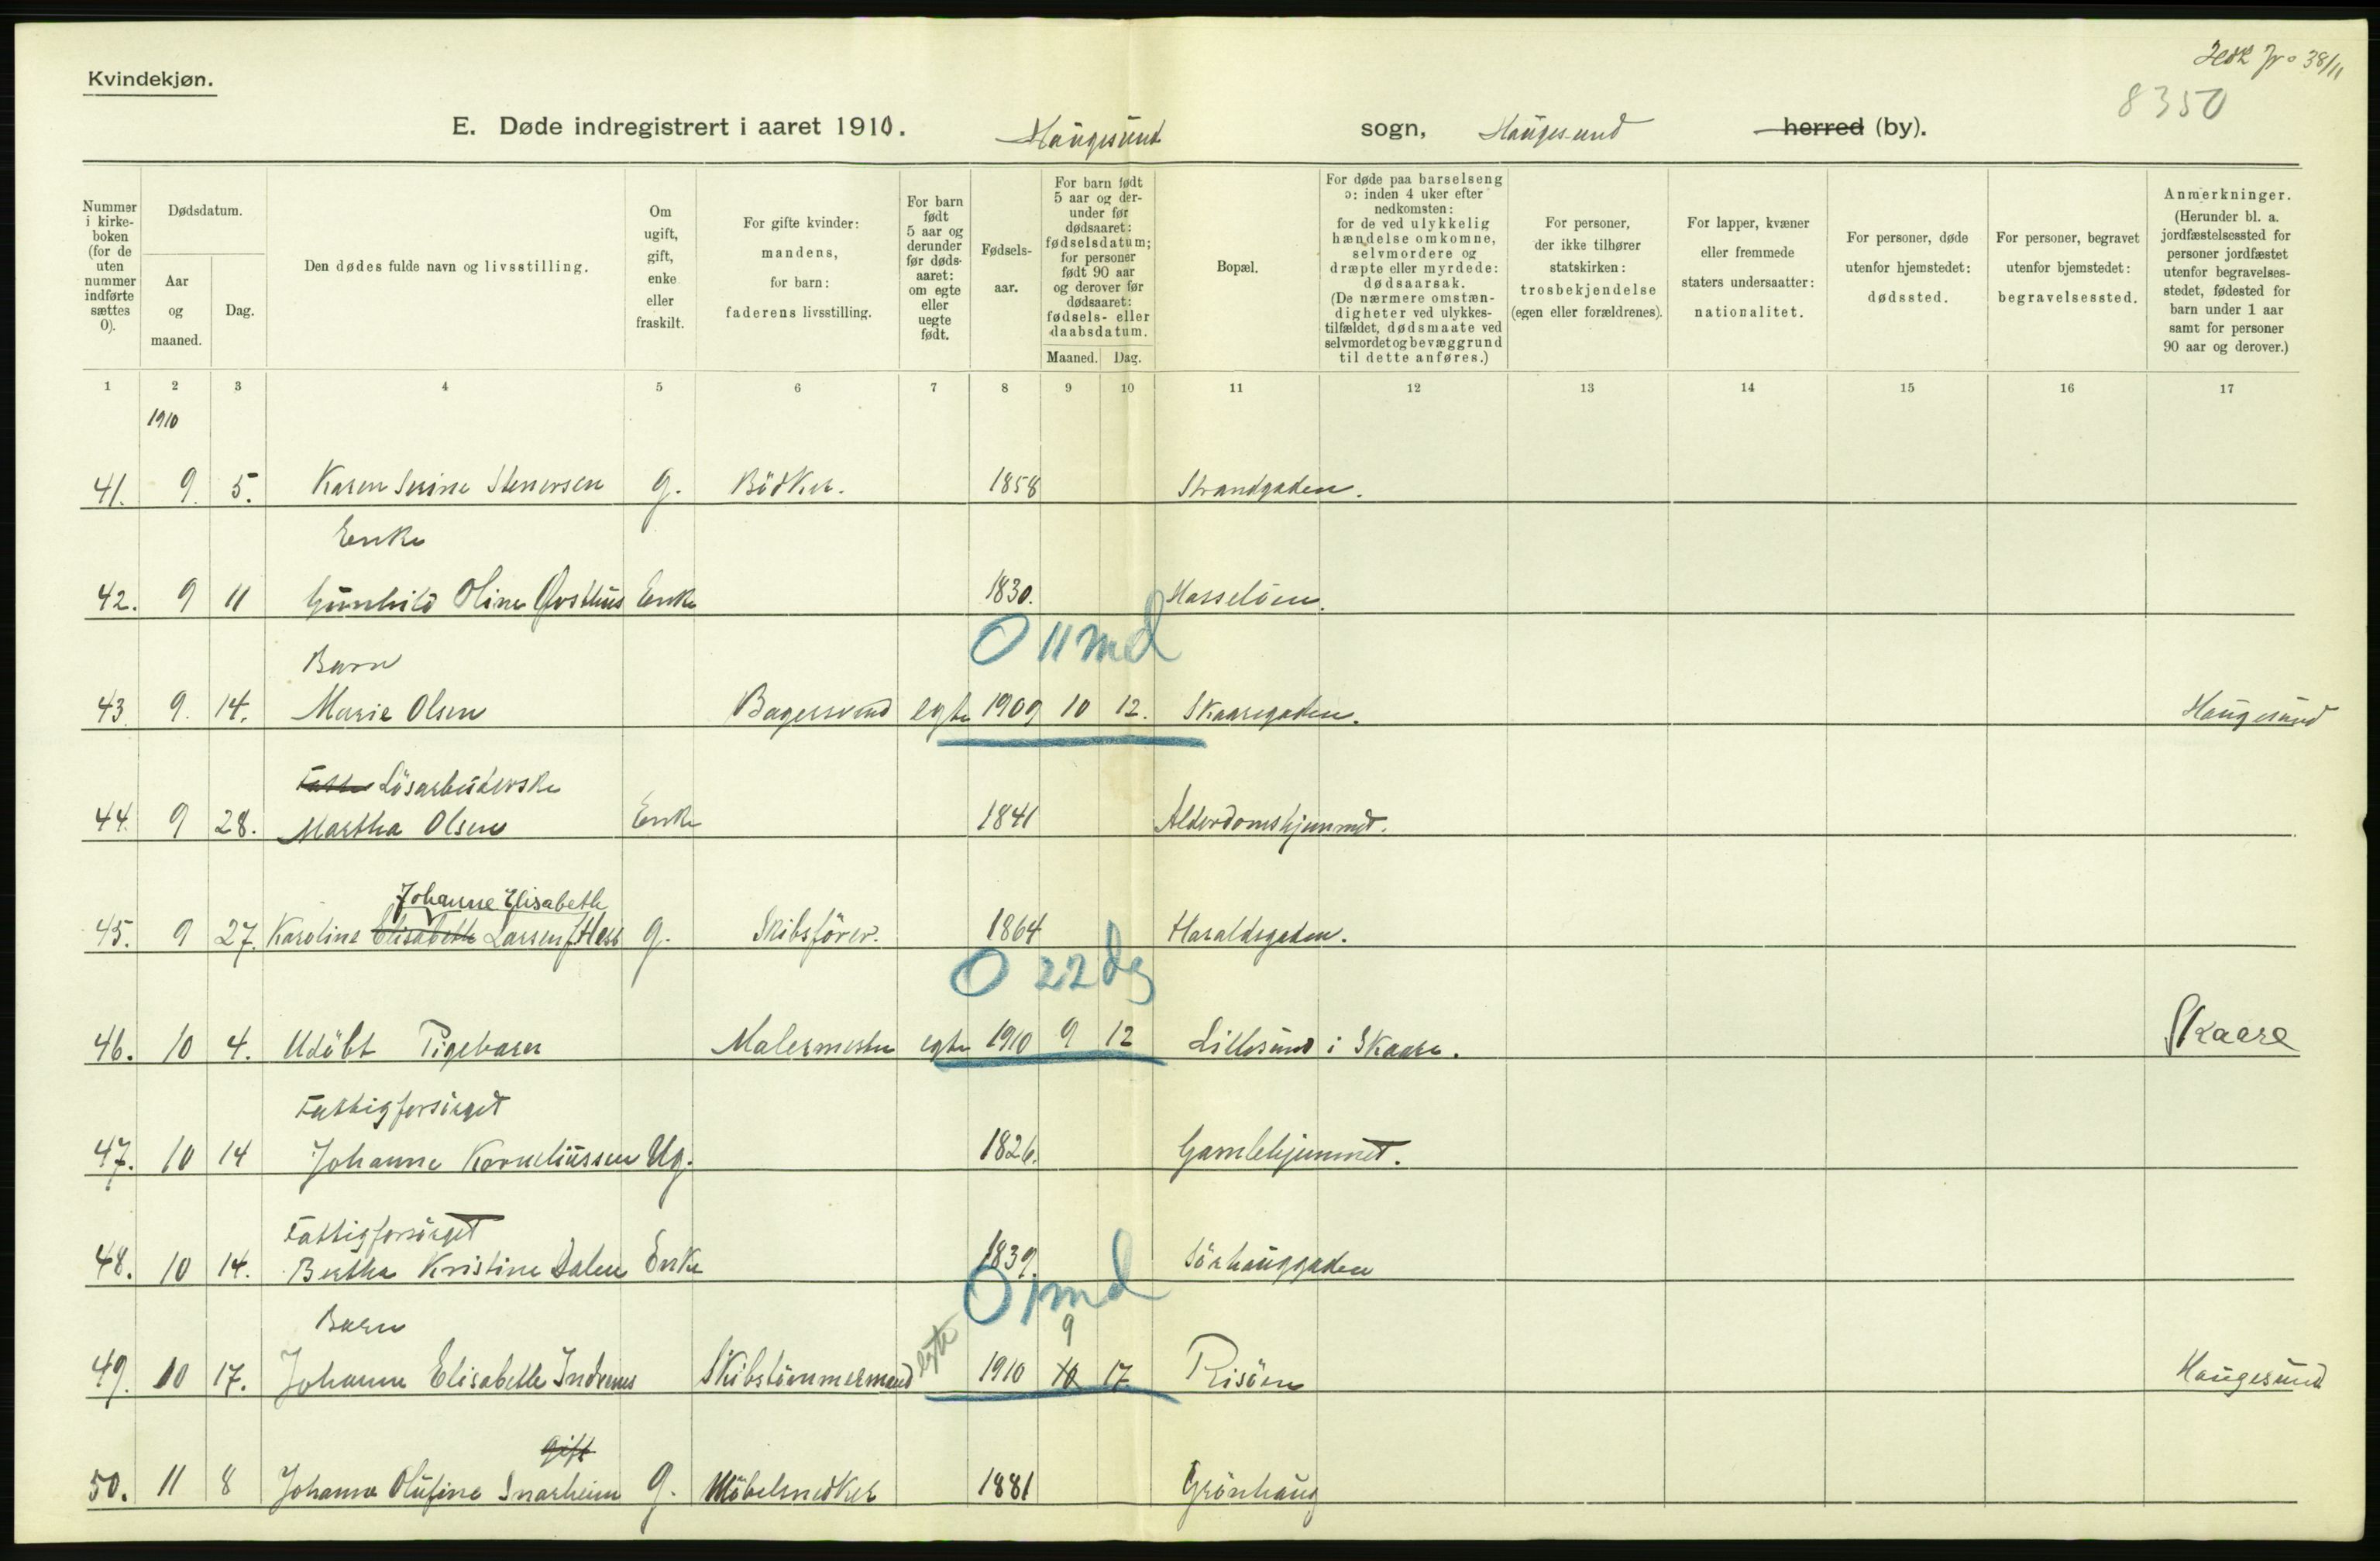 38/11
8350
Kvindekjøn.
E. Døde indregistrert i aaret 1910. Haugesund sogn, Haugesund herred (by).
Nummer i kirkeboken (for de uten nummer indførte sættes 0).
Dødsdatum.
Aar og maaned.
Dag.
Den dødes fulde navn og livsstilling.
Om ugift, gift, enke eller fraskilt.
For gifte kvinder: mandens, for barn: faderens livsstilling.
For barn født 5 aar og derunder før dødsaaret: om egte eller uegte født.
Fødselsaar.
For barn født 5 aar og derunder før dødsaaret: fødselsdatum; for personer født 90 aar og derover før dødsaaret: fødsels- eller daabsdatum.
Maaned. Dag.
Bopæl.
For døde paa barselseng ɔ: inden 4 uker efter nedkomsten: for de ved ulykkelig hændelse omkomne, selvmordere og dræpte eller myrdede: dødsaarsak. (De nærmere omstændigheter ved ulykkestilfældet, dødsmaate ved selvmordet og bevæggrund til dette anføres.)
For personer, der ikke tilhører statskirken: trosbekjendelse (egen eller forældrenes).
For lapper, kvæner eller fremmede staters undersaatter: nationalitet.
For personer, døde utenfor hjemstedet: dødssted.
For personer, begravet utenfor bjemstedet: begravelsessted.
Anmerkninger. (Herunder bl. a. jordfæstelsessted for personer jordfæstet utenfor begravelsesstedet, fødested for barn under 1 aar samt for personer 90 aar og derover.)
1 2 3 4 5 6 7 8 9 10 11 12 13 14 15 16 17
1910
41. 9. 5. Karen Serine Stenersen g. Bödker. 1858 Strandgaden.
Enke
42. 9 11 Gunhild Oline Enke 1830. Hasselöen.
0 11 md
Barn
43 9. 14. Marie Olsen Bagersvend egte 1909 10 12. Skaaregaden. Haugesund
Lösarbeiderske
44. 9 28. Martha Olsen Enke 1841 Alderdomshjemmet.
Johanne Elisabeth
45. 9 27. Karoline Elisabeth Larsen f. Hess g. Skibsförer. 1864 Haraldsgaden.
0 22 dg
46. 10 4. Udöbt Pigebarn Malermester egte 1910 9 12 Lillesund i Skaare. Skaare
Fattigforsörget
47. 10 14 Johanne Korneliussen Ug. 1826. Gamlehjemmet.
Fattigforsörget
48. 10 14. Bertha Kristine Dalen Enke 1839. Sörhauggaden
0 1 md
Barn
9
49. 10 17. Johanne Elisabeth Indrenes Skibstömmermand egte 1910 10 17. Risöen Haugesund
Gift
50. 11 8 Johanne Olufine Snarheim g. Möbelsnedker 1881 Grönhaug